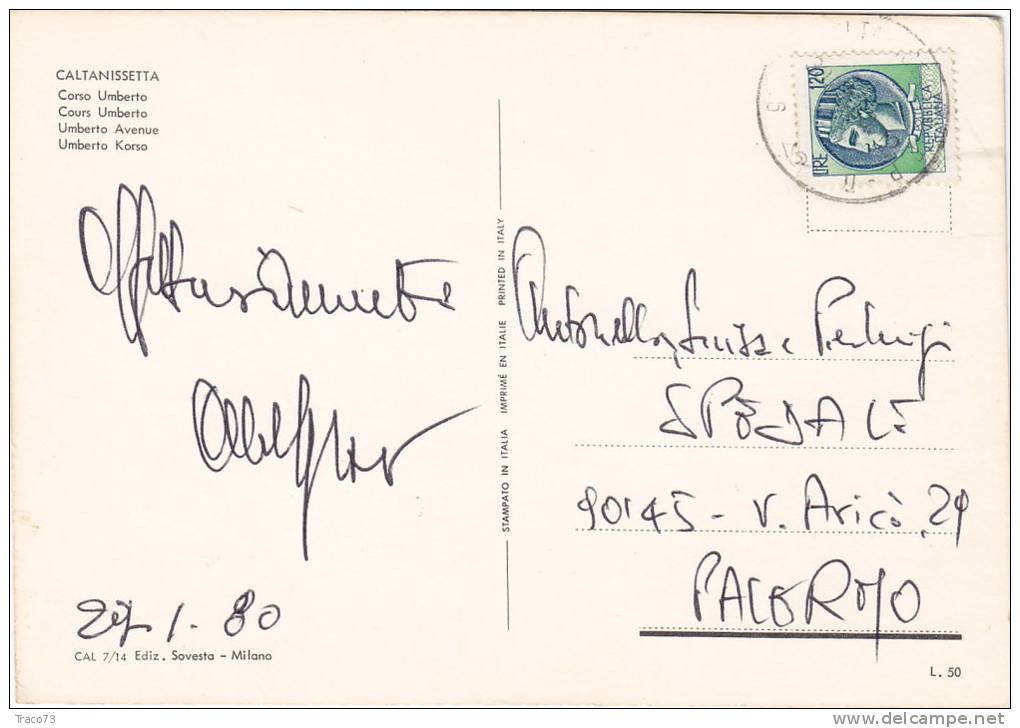 CALTANISSETTA
Corso Umberto
Cours Umberto
Umberto Avenue
Umberto Korso
LIRE 120
REPVBBLICA
ITALIANA
Affettuosamente
27-1-80
CAL 7/14 Ediz. Sovesta - Milano
STAMPATO IN ITALIA IMPRIMÉ EN ITALIE PRINTED IN ITALY
Antonella, Luisa e Pierluigi
SPEDALE
90145 - V. Aricò, 29
PALERMO
L. 50
Traco73
delcampe.net